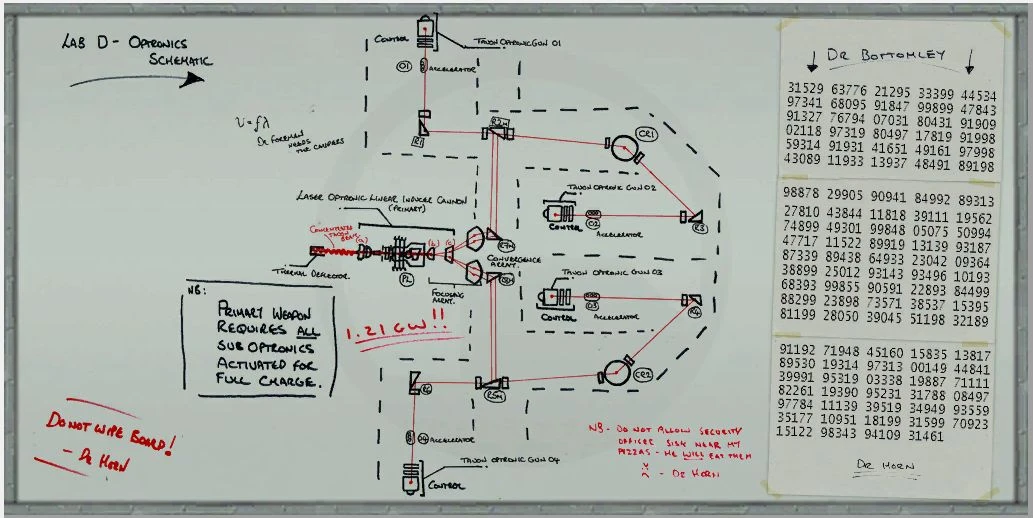 LAB D - OPTRONICS
SCHEMATIC
CONTROL
TAVON OPTRONIC GUN 01
01
ACCELERATOR
R1
R2M
CR1
v = fλ
DR FOREMAN
NEEDS
THE CAMPARS
TAVON OPTRONIC GUN 02
CONTROL
02
ACCELERATOR
R3
LASER OPTRONIC LINEAR INDUCER CANNON
(PRIMARY)
CONCENTRATED
TAVON
BEAM
(a)
(b)
(c)
THERMAL DETECTOR
PL
R7M
CONVERGENCE
ARRAY.
FOCUSING
ARRAY.
TAVON OPTRONIC GUN 03
CONTROL
03
ACCELERATOR
R4
NB:
PRIMARY WEAPON
REQUIRES ALL
SUB OPTRONICS
ACTIVATED FOR
FULL CHARGE.
1.21 GW!!
R6
R5M
CR2
04
ACCELERATOR
TAVON OPTRONIC GUN 04
CONTROL
DO NOT WIPE BOARD!
- DR HORN
NB - DO NOT ALLOW SECURITY
OFFICER SISK NEAR MY
PIZZAS - HE WILL EAT THEM
- DR HORN
DR BOTTOMLEY
31529 63776 21295 33399 44534
97341 68095 91847 99899 47843
91327 76794 07031 80431 91909
02118 97319 80497 17819 91998
59314 91931 41651 49161 97998
43089 11933 13937 48491 89198
98878 29905 90941 84992 89313
27810 43844 11818 39111 19562
74899 49301 99848 05075 50994
47717 11522 89919 13139 93187
87339 89438 64933 23042 09364
38899 25012 93143 93496 10193
68393 99855 90591 22893 84499
88299 23898 73571 38537 15395
81199 28050 39045 51198 32189
91192 71948 45160 15835 13817
89530 19314 97313 00149 44841
39991 95319 03338 19887 71111
82261 19390 95231 31788 08497
97784 11139 39519 34949 93559
35177 10951 18199 31599 70923
15122 98343 94109 31461
DR HORN